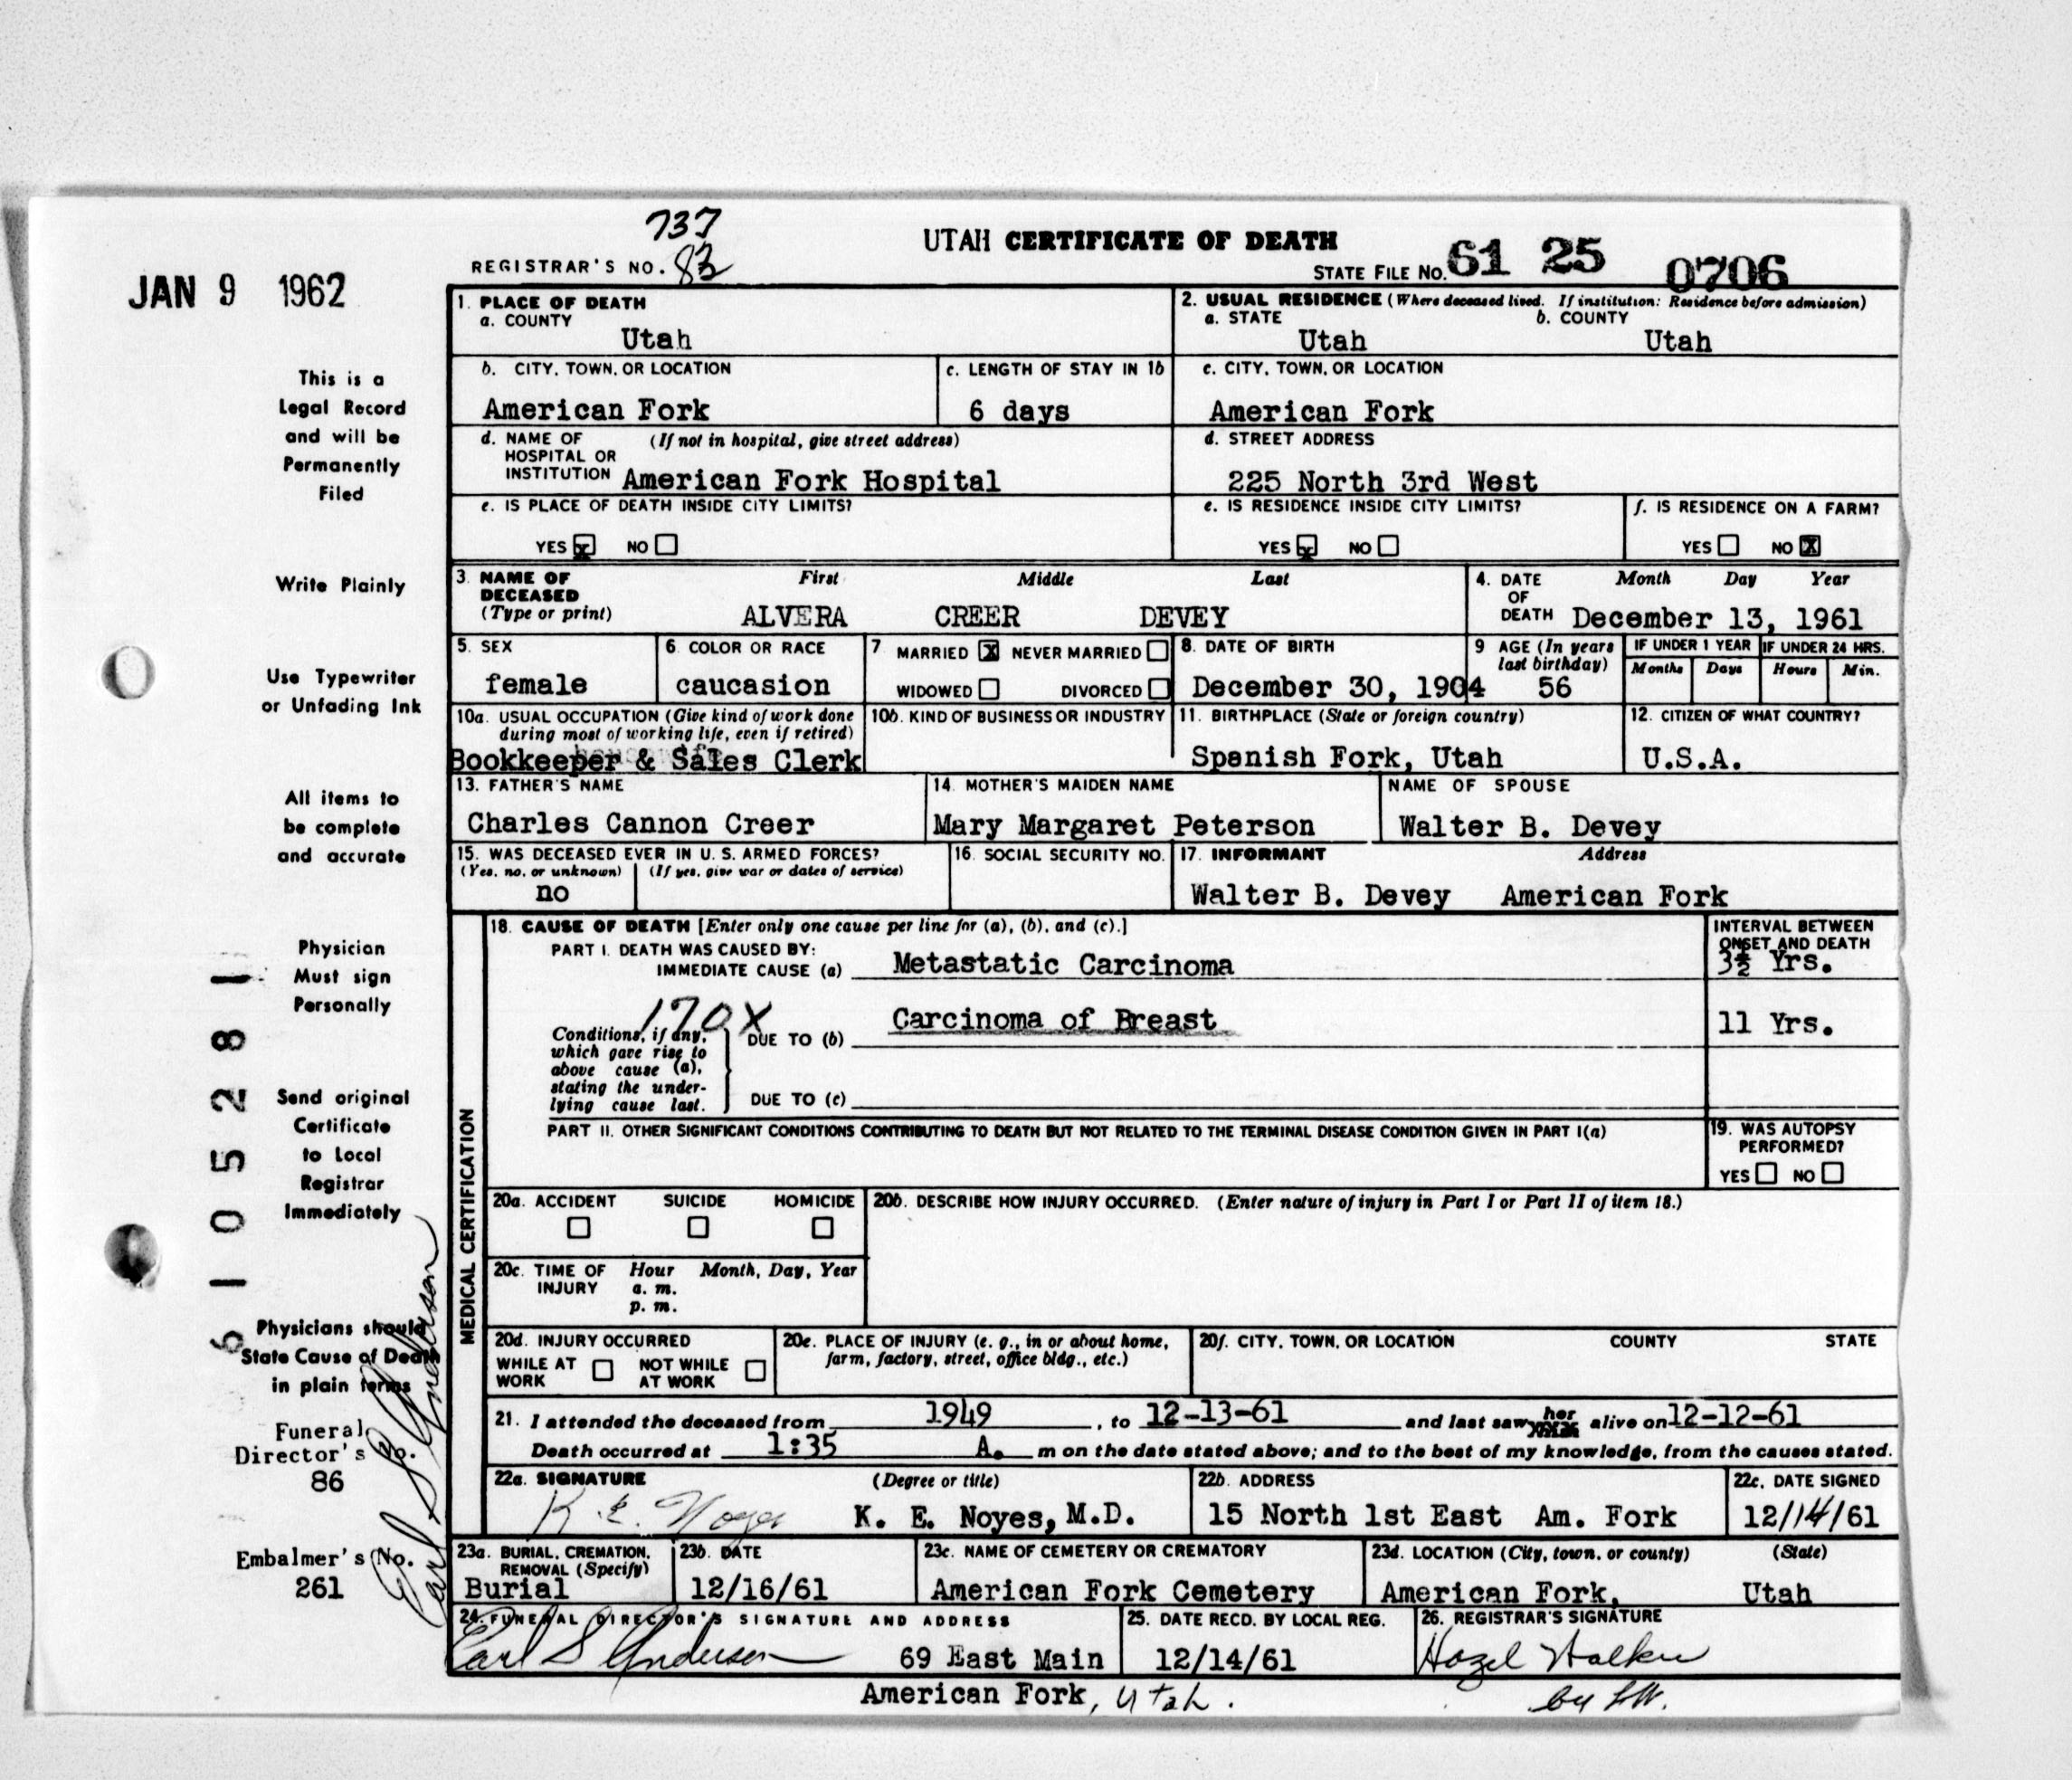 737
UTAH CERTIFICATE OF DEATH
REGISTRAR'S NO. 83
STATE FILE No. 61 25 0706
JAN 9 1962
This is a
Legal Record
and will be
Permanently
Filed
Write Plainly
Use Typewriter
or Unfading Ink
All items to
be complete
and accurate
Physician
Must sign
Personally
Send original
Certificate
to Local
Registrar
Immediately
Physicians should
State Cause of Death
in plain terms
Funeral
Director's No.
86
Embalmer's No.
261
Earl S Anderson
6 1 0 5 2 8 1
1. PLACE OF DEATH
a. COUNTY
Utah
2. USUAL RESIDENCE (Where deceased lived. If institution: Residence before admission)
a. STATE b. COUNTY
Utah Utah
b. CITY, TOWN, OR LOCATION
American Fork
c. LENGTH OF STAY IN 1b
6 days
c. CITY, TOWN, OR LOCATION
American Fork
d. NAME OF (If not in hospital, give street address)
HOSPITAL OR
INSTITUTION American Fork Hospital
d. STREET ADDRESS
225 North 3rd West
e. IS PLACE OF DEATH INSIDE CITY LIMITS?
YES x NO
e. IS RESIDENCE INSIDE CITY LIMITS?
YES x NO
f. IS RESIDENCE ON A FARM?
YES NO X
3. NAME OF First Middle Last
DECEASED
(Type or print) ALVERA CREER DEVEY
4. DATE Month Day Year
OF
DEATH December 13, 1961
5. SEX
female
6. COLOR OR RACE
caucasion
7 MARRIED X NEVER MARRIED
WIDOWED DIVORCED
8. DATE OF BIRTH
December 30, 1904
9 AGE (In years
last birthday)
56
IF UNDER 1 YEAR IF UNDER 24 HRS.
Months Days Hours Min.
10a. USUAL OCCUPATION (Give kind of work done
during most of working life, even if retired)
Bookkeeper & Sales Clerk
10b. KIND OF BUSINESS OR INDUSTRY
11. BIRTHPLACE (State or foreign country)
Spanish Fork, Utah
12. CITIZEN OF WHAT COUNTRY?
U.S.A.
13. FATHER'S NAME
Charles Cannon Creer
14. MOTHER'S MAIDEN NAME
Mary Margaret Peterson
NAME OF SPOUSE
Walter B. Devey
15. WAS DECEASED EVER IN U. S. ARMED FORCES?
(Yes, no, or unknown) (If yes, give war or dates of service)
no
16. SOCIAL SECURITY NO.
17. INFORMANT Address
Walter B. Devey American Fork
MEDICAL CERTIFICATION
18. CAUSE OF DEATH [Enter only one cause per line for (a), (b), and (c).]
PART I. DEATH WAS CAUSED BY:
IMMEDIATE CAUSE (a) Metastatic Carcinoma
INTERVAL BETWEEN
ONSET AND DEATH
3½ Yrs.
170X
Conditions, if any,
which gave rise to
above cause (a),
stating the under-
lying cause last.
DUE TO (b) Carcinoma of Breast
11 Yrs.
DUE TO (c)
PART II. OTHER SIGNIFICANT CONDITIONS CONTRIBUTING TO DEATH BUT NOT RELATED TO THE TERMINAL DISEASE CONDITION GIVEN IN PART I(a)
19. WAS AUTOPSY
PERFORMED?
YES NO
20a. ACCIDENT SUICIDE HOMICIDE
20b. DESCRIBE HOW INJURY OCCURRED. (Enter nature of injury in Part I or Part II of item 18.)
20c. TIME OF Hour Month, Day, Year
INJURY a. m.
p. m.
20d. INJURY OCCURRED
WHILE AT NOT WHILE
WORK AT WORK
20e. PLACE OF INJURY (e. g., in or about home,
farm, factory, street, office bldg., etc.)
20f. CITY, TOWN, OR LOCATION COUNTY STATE
21. I attended the deceased from 1949, to 12-13-61 and last saw her alive on 12-12-61
Death occurred at 1:35 A. m on the date stated above; and to the best of my knowledge, from the causes stated.
22a. SIGNATURE (Degree or title)
K. E. Noyes K. E. Noyes, M.D.
22b. ADDRESS
15 North 1st East Am. Fork
22c. DATE SIGNED
12/14/61
23a. BURIAL, CREMATION,
REMOVAL (Specify)
Burial
23b. DATE
12/16/61
23c. NAME OF CEMETERY OR CREMATORY
American Fork Cemetery
23d. LOCATION (City, town, or county) (State)
American Fork, Utah
24. FUNERAL DIRECTOR'S SIGNATURE AND ADDRESS
Earl S Anderson 69 East Main
American Fork, Utah.
25. DATE RECD. BY LOCAL REG.
12/14/61
26. REGISTRAR'S SIGNATURE
Hazel Walker
by